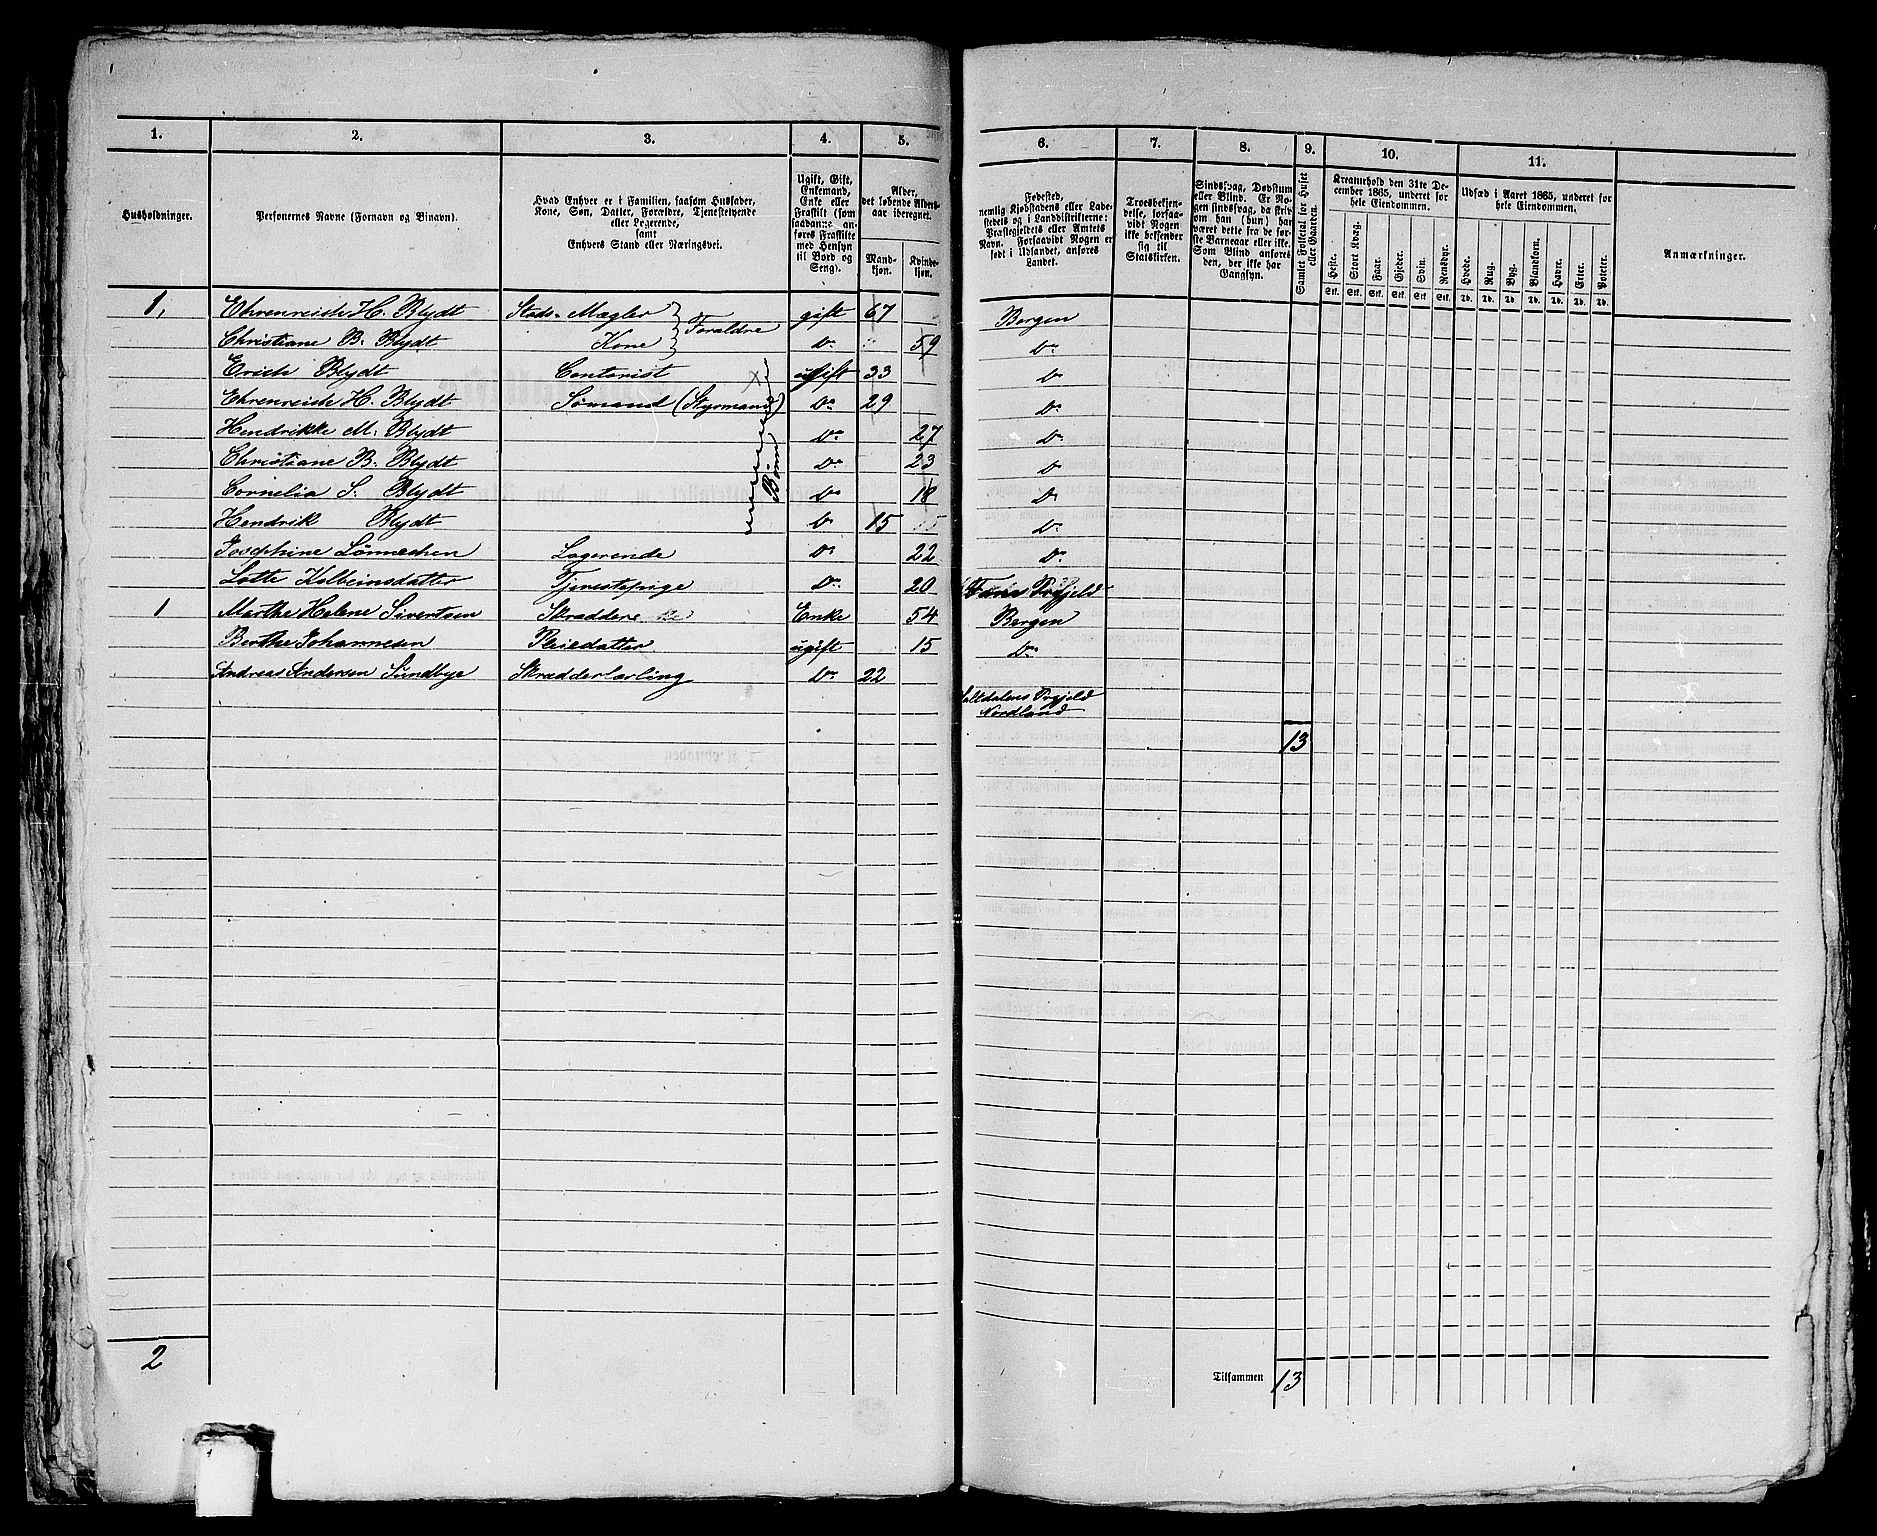 1. 2. 3. 4. 5. 6. 7. 8. 9. 10. 11.
Husholdninger.
Personernes Navne (Fornavn og Binavn).
Hvad Enhver er i Familien, saasom Husfader,
Kone, Søn, Datter, Forældre, Tjenestetyende
eller Logerende,
samt
Enhvers Stand eller Næringsvei.
Ugift, Gift,
Enkemand,
Enke eller
Fraskilt (som
saadanne anføres
Fraskilte
med Hensyn
til Bord og
Seng).
Alder,
det løbende Alders-
aar iberegnet.
Mand-
kjøn.
Kvinde-
kjøn.
Fødested,
nemlig Kjøbstadens eller Lade-
stedets og i Landdistrikterne:
Præstegjeldets eller Amtets
Navn. Forsaavidt Nogen er
født i Udlandet, anføres
Landet.
Troesbekjen-
delse, forsaa-
vidt Nogen
ikke bekjender
sig til
Statskirken.
Sindssvag, Døvstum
eller Blind. Er No-
gen sindssvag, da skriv
om han (hun) har
været dette fra de før-
ste Barneaar eller ikke.
Som Blind anføres
den, der ikke har
Gangsyn.
Samlet Folketal for Huset
eller Gaarden.
Kreaturhold den 31te De-
cember 1865, underet for
hele Eiendommen.
Heste. Stort Kvæg. Faar. Gjeder. Svin. Rensdyr.
Stk. Stk. Stk. Stk. Stk. Stk.
Udsæd i Aaret 1865, underet for
hele Eiendommen.
Hvede. Rug. Byg. Blandkorn. Havre. Erter. Poteter.
Td. Td. Td. Td. Td. Td. Td.
Anmærkninger.
1, Ehrenreich H. Blydt Stads-Mægler Foraldre gift 67 Bergen
Christiane B. Blydt Kone Do 59 Do
Erich Blydt Contorist ugift 33 Do
Ehrenreich H. Blydt Sømand (Styrmand) Do 29 Do
Hendrikke M. Blydt Do 27 Do
Christiane B. Blydt Børn Do 23 Do
Cornelia S. Blydt Do 18 Do
Hendrik Blydt Do 15 Do
Josephine Lønnechen Logerende Do 22 Do
Lotte Kolbeinsdatter Tjenestepige Do 20 Prgjeld
1 Marthe Helene Sivertsen Enke 54 Bergen
Berthe Johannesen Pleiedatter ugift 15 Do
Andreas Andersen Sundbye Skrædderlærling Do 22 Saltdalens Prgjeld
Nordland
13
2
Tilsammen 13